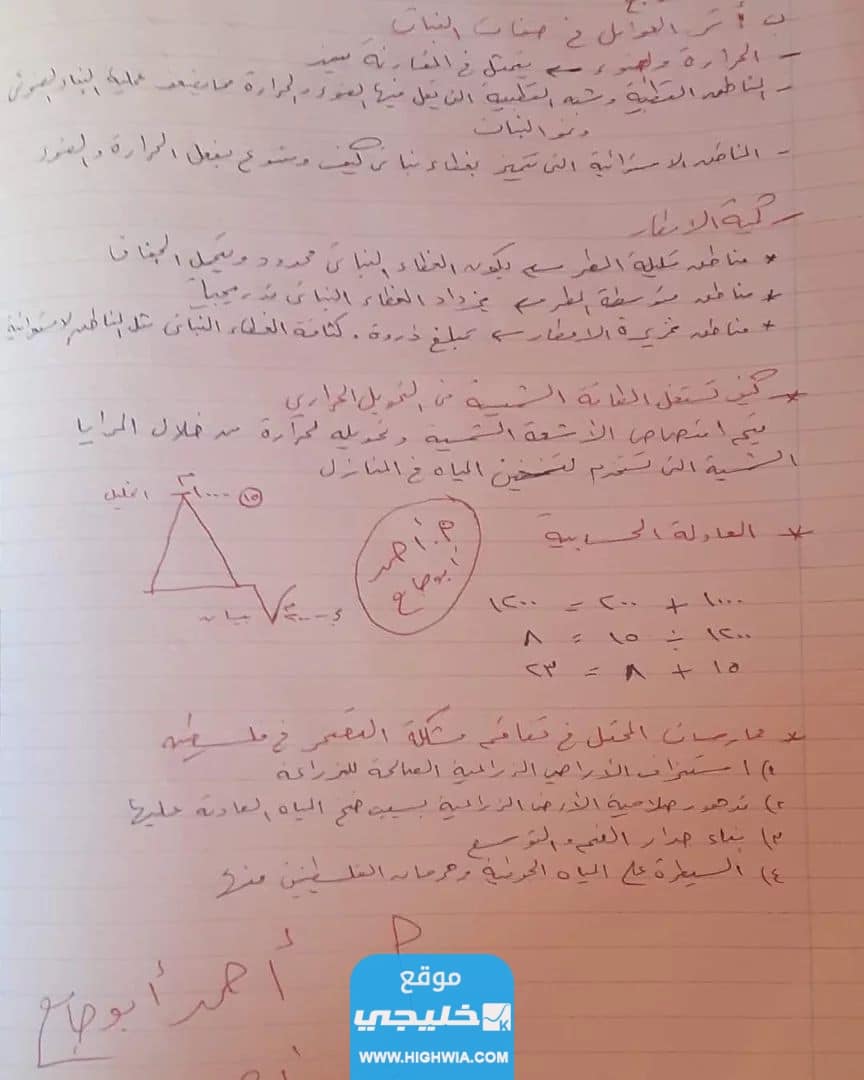 ب أثر العوامل في صفات النبات
- الحرارة والضوء ← يتمثل في المقارنة بين
- المناطق القطبية وشبه القطبية التي يقل فيها الضوء والحرارة مما يضعف عملية البناء الضوئي
ونمو النبات
- المناطق الاستوائية التي تتميز بغطاء نباتي كثيف ومتنوع بفعل الحرارة والضوء
- كمية الامطار
* مناطق قليلة المطر ← يكون الغطاء النباتي محدود ويتحمل الجفاف
* مناطق متوسطة المطر ← يزداد الغطاء النباتي تدريجياً
* مناطق غزيرة الامطار ← تبلغ ذروة. كثافة الغطاء النباتي مثل المناطق الاستوائية
* كيف تستغل الطاقة الشمسية في التحويل الحراري
يتم امتصاص الأشعة الشمسية وتحويله لحرارة من خلال المرايا
الشمسية التي تستخدم لتسخين المياه في المنازل
الخليل ١٠٠٠م ١٥
بيسان -٢٠٠م
م. أحمد
أبوجامع
* المعادلة الحسابية
١٠٠٠ + ٢٠٠ = ١٢٠٠
١٢٠٠ ÷ ١٥٠ = ٨
١٥ + ٨ = ٢٣
* ممارسات المحتل في تفاقم مشكلة التصحر في فلسطين
١) استنزاف الأراضي الزراعية الصالحة للزراعة
٢) تدهور صلاحية الأرض الزراعية بسبب ضخ المياه العادمة عليها
٣) بناء جدار الضم والتوسع
٤) السيطرة على المياه الجوفية وحرمان الفلسطينين منها
م. أحمد أبوجامع
موقع
خليجي
WWW.HIGHWIA.COM